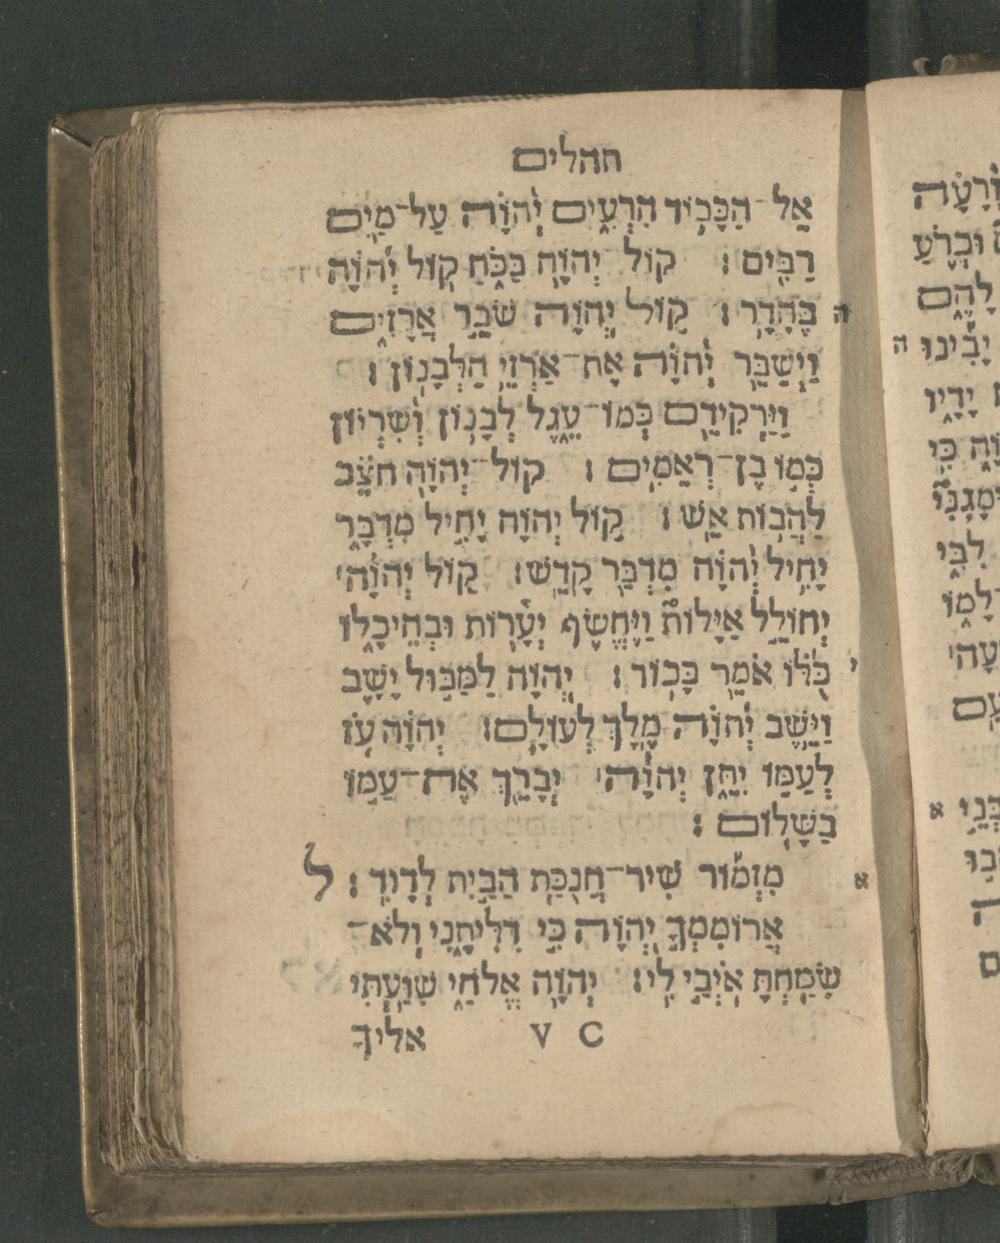 תהלים
אֵל־הַכָּבוֹד הִרְעִים יְהוָֹה עַל־מַיִם
רַבִּים׃ קוֹל־יְהוָֹה בַּכֹּחַ קוֹל יְהוָֹה
בֶּהָדָר׃ קוֹל יְהוָֹה שֹׁבֵר אֲרָזִים ה
וַיְשַׁבֵּר יְהוָֹה אֶת־אַרְזֵי הַלְּבָנוֹן׃
וַיַּרְקִידֵם כְּמוֹ־עֵגֶל לְבָנוֹן וְשִׂרְיוֹן
כְּמוֹ בֶן־רְאֵמִים׃ קוֹל־יְהוָֹה חֹצֵב
לַהֲבוֹת אֵשׁ׃ קוֹל יְהוָֹה יָחִיל מִדְבָּר
יָחִיל יְהוָֹה מִדְבַּר קָדֵשׁ׃ קוֹל יְהוָֹה
יְחוֹלֵל אַיָּלוֹת וַיֶּחֱשֹׂף יְעָרוֹת וּבְהֵיכָלוֹ
כֻּלּוֹ אֹמֵר כָּבוֹד׃ יְהוָֹה לַמַּבּוּל יָשָׁב י
וַיֵּשֶׁב יְהוָֹה מֶלֶךְ לְעוֹלָם׃ יְהוָֹה עֹז
לְעַמּוֹ יִתֵּן יְהוָֹה יְבָרֵךְ אֶת־עַמּוֹ
בַשָּׁלוֹם׃
מִזְמוֹר שִׁיר־חֲנֻכַּת הַבַּיִת לְדָוִד׃ ל א
אֲרוֹמִמְךָ יְהוָֹה כִּי דִלִּיתָנִי וְלֹא־
שִׂמַּחְתָּ אֹיְבַי לִי׃ יְהוָֹה אֱלֹהָי שִׁוַּעְתִּי
V C אליך
וְרָעָה
וּבְרֹעַ
לָהֶם
יָבִינוּ ה
יָדָיו
כִּי
לִבִּי
לָמוֹ
בְּנֵי א